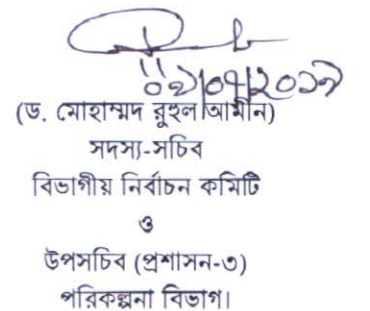 (ড. মোহাম্মদ রুহুল আমীন)
সদস্য-সচিব
বিভাগীয় নির্বাচন কমিটি
ও
উপসচিব (প্রশাসন-৩)
পরিকল্পনা বিভাগ।